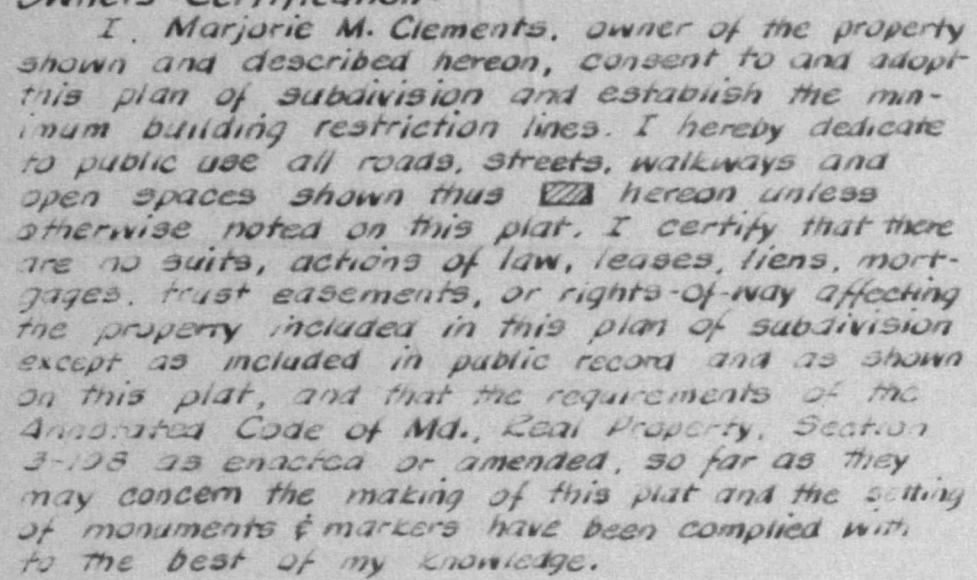 Owners Certification
I, Marjorie M. Clements, owner of the property
shown and described hereon, consent to and adopt
this plan of subdivision and establish the min-
imum building restriction lines. I hereby dedicate
to public use all roads, streets, walkways and
open spaces shown thus hereon unless
otherwise noted on this plat. I certify that there
are no suits, actions of law, leases, liens, mort-
gages, trust easements, or rights-of-way affecting
the property included in this plan of subdivision
except as included in public record and as shown
on this plat, and that the requirements of the
Annotated Code of Md., Real Property, Section
3-108 as enacted or amended, so far as they
may concern the making of this plat and the setting
of monuments & markers have been complied with
to the best of my knowledge.